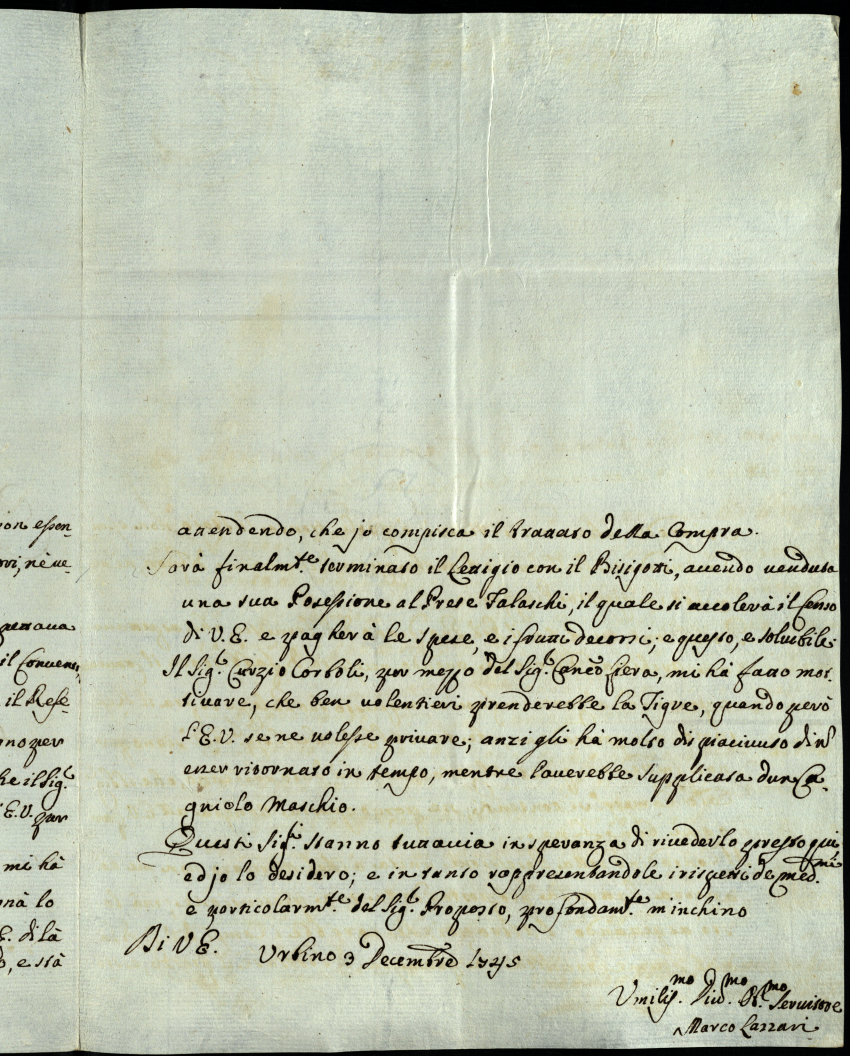 ion essen-
ovi, nè ue-
il Conuen
il Refe-
ono per
he il Sig.r
E.V. per
mi hà
nà lo
E. di là
o, e stà
attendendo, che jo compisca il trattato della Compra.
Sarà finalm.te terminato il Letigio con il Bisigotti, auendo uenduta
una sua Posessione al Prete Talaschi, il quale si accolerà il Censo
di V.E. e pagherà le spese, e i frutti decorsi; e questo, e solubile.
Il Sig.r Curzio Corboli, per mezzo del Sig.r Canco Fiera, mi hà fatto mot.
tiuare, che ben uolentieri prenderebbe la Tigre, quando però
l'E.V. se ne uolesse priuare; anzi gli hà molto dispiaciuto di n
esser ritornato in tempo, mentre l'auerebbe supplicata d'un Ca-
gniolo Maschio.
Questi Sig.ri stanno tuttauia in speranza di riuederlo presto qui
ed jo lo desidero; e in tanto rappresentandole i rispetti de med.mi
e particolarm.te del Sig.r Proposto, profondam.te m'inchino
Di V.E. Urbino 3 Decembre 1745
Umilis.mo Diu.mo Ob.mo Seruitore
Marco Lazzari